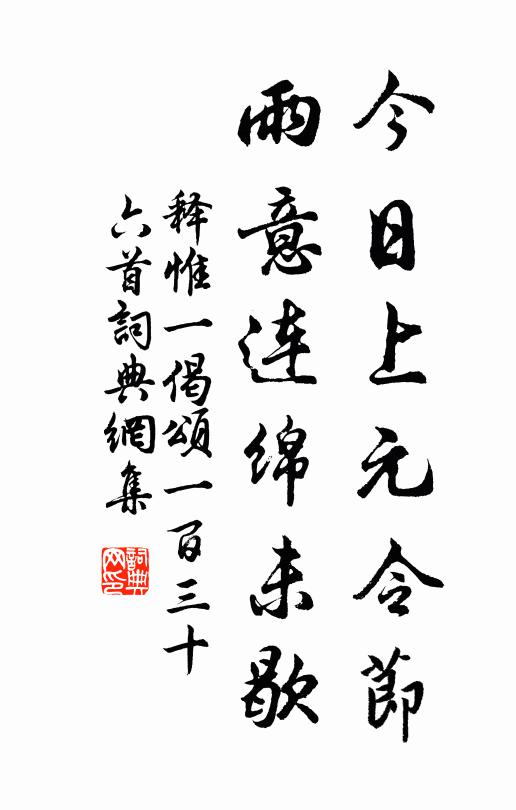 今日上元令節
雨意連綿未歇
释惟一偈頌一百三十
六首詞典網集
詞典網印